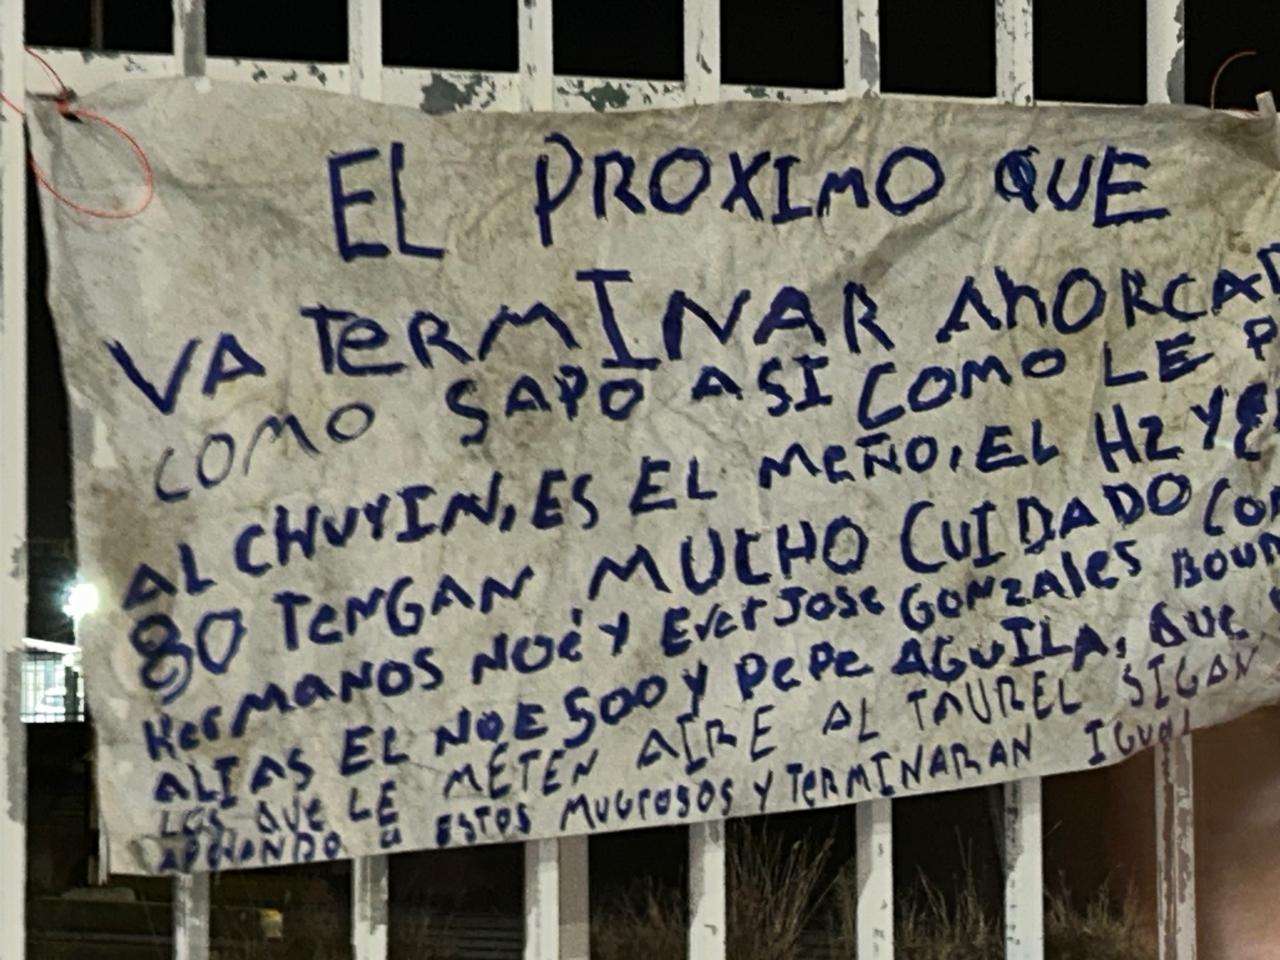 EL PROXIMO QUE
VA TERMINAR AHORCAD
COMO SAPO ASI COMO LE P
AL CHUYIN, ES EL MEÑO, EL H2 Y E
80 TENGAN MUCHO CUIDADO CO
HerMANOS NOE Y Ever JOSE GONZALES BOUR
ALIAS EL NOE 500 Y PEPE AGUILA, QUE
LOS QUE LE METEN AIRE AL TAUREL SIGAN
APOYANDO a ESTOS MUGrOSOS Y TERMINARAN IGUAL